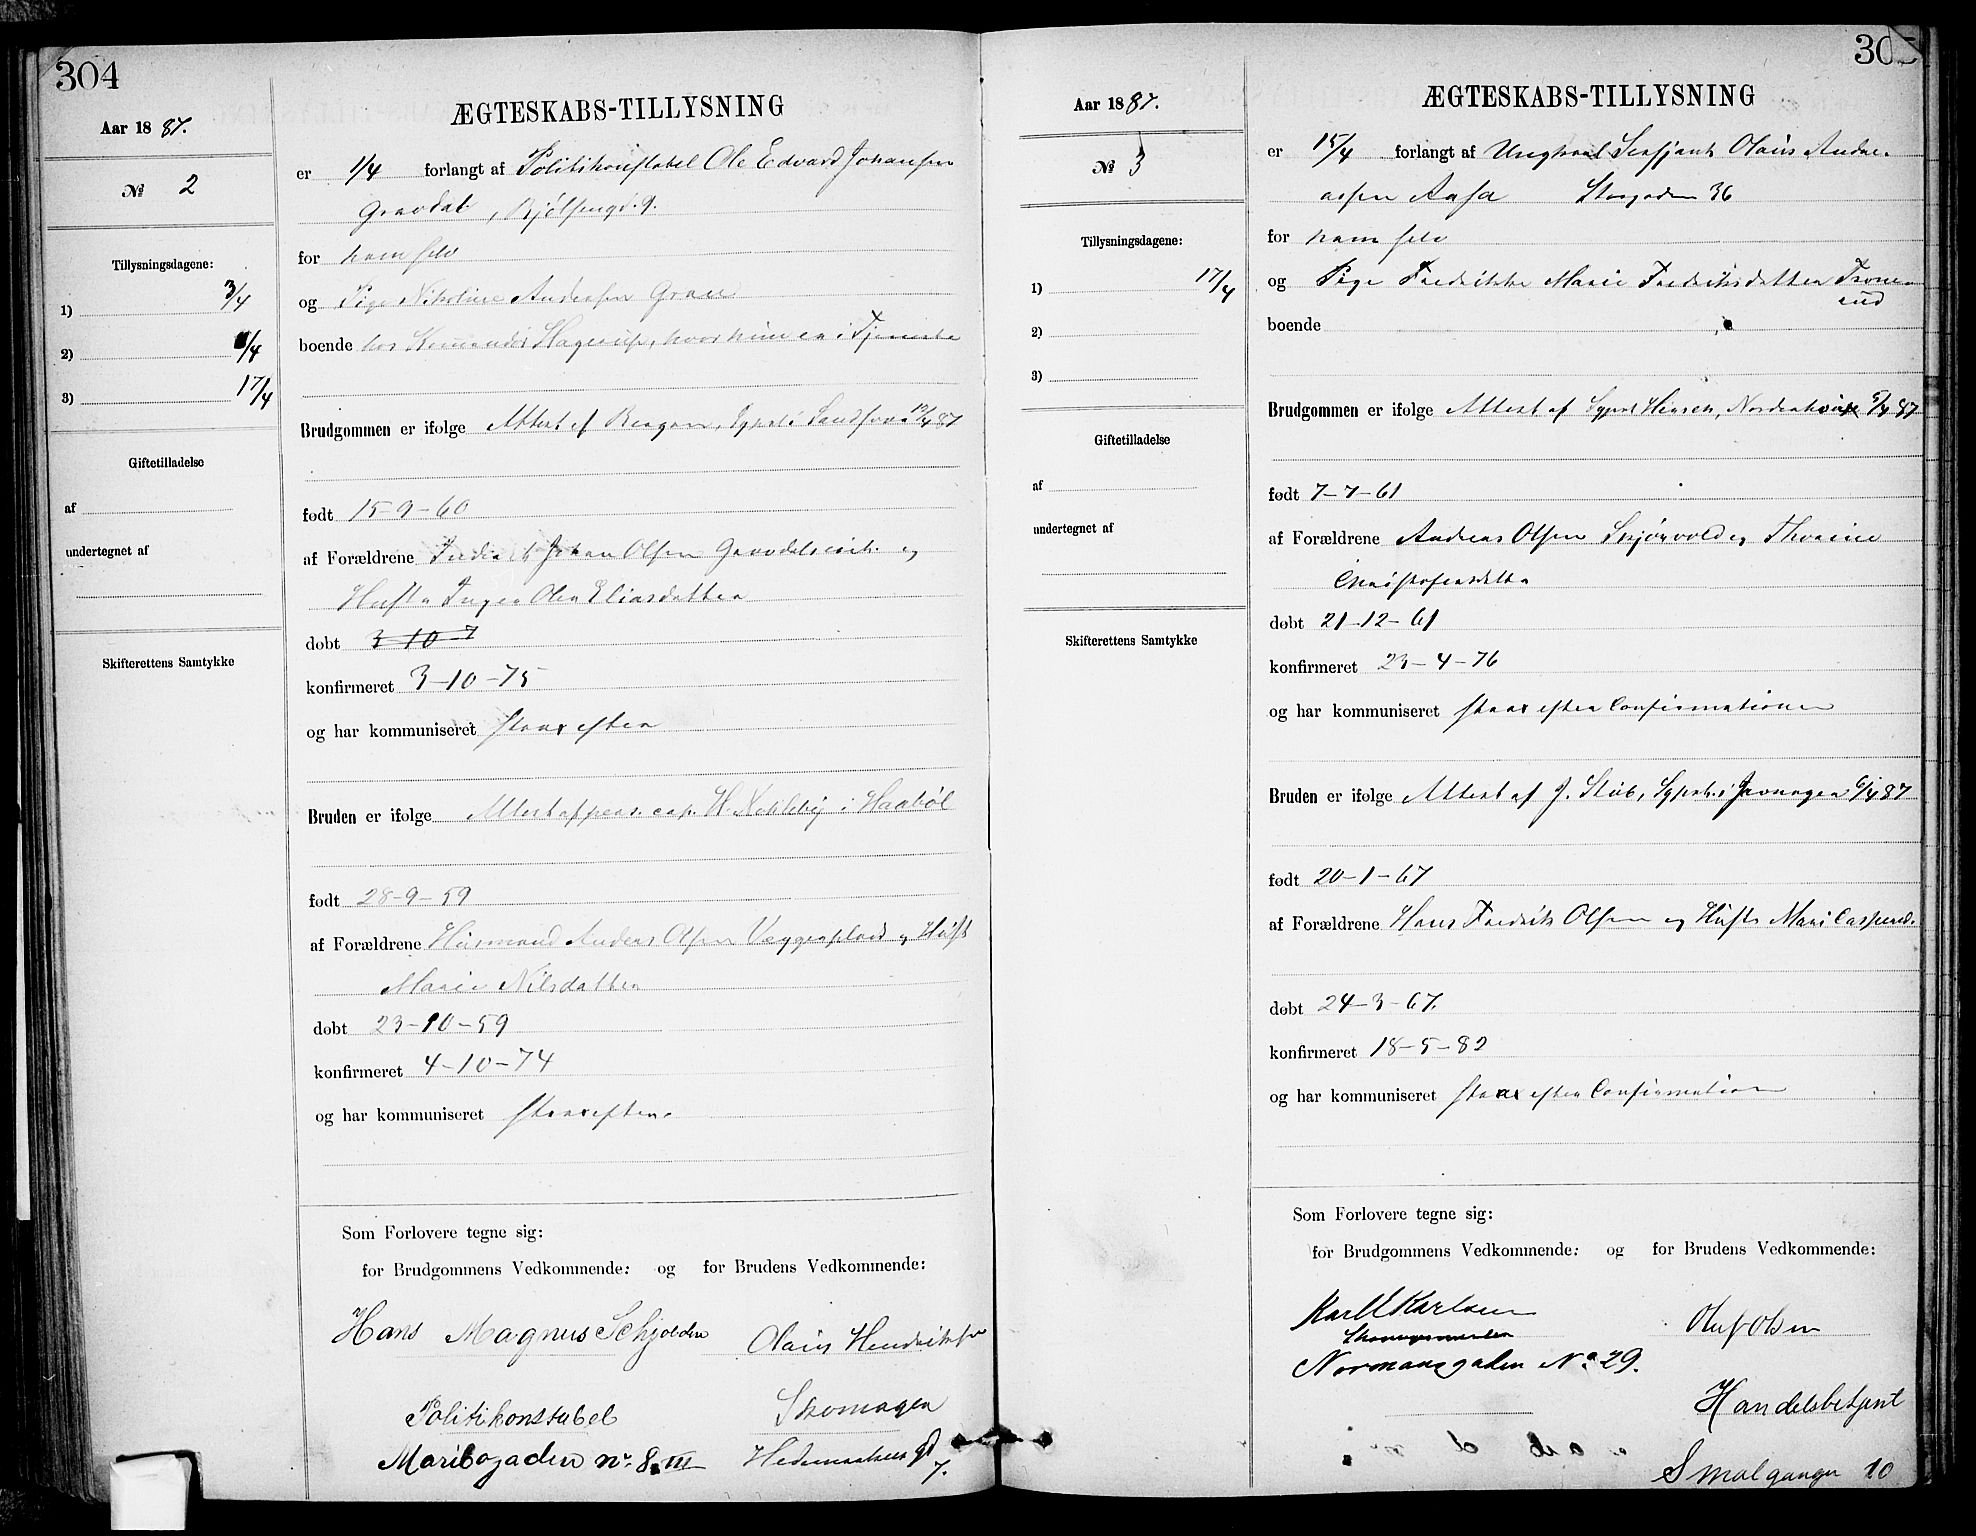 304
Aar 1887.
№ 2
Tillysningsdagene:
1) 3/4
2) /4
3) 17/4
Giftetilladelse
af
undertegnet af
Skifterettens Samtykke
ÆGTESKABS-TILLYSNING
er 1/4 forlangt af Politikonstabel Ole Edvard Johansen
Gravdal, 9.
for ham selv
og Pige Nikoline Andersen Grave
boende hos Hagerup, hvor hun er i Tjeneste
Brudgommen er ifølge Attest af 87
født 15-9-60
af Forældrene Johan Olsen og
Hustr Inger Olea Eliasdatter
døbt 3-10-7
konfirmeret 3-10-75
og har kommuniseret strax efter
Bruden er ifølge Attest af pers. cap. i Haabøl
født 28-9-59
af Forældrene Husmand Anders Olsen og Hust
Marie Nilsdatter
døbt 23-10-59
konfirmeret 4-10-74
og har kommuniseret strax efter.
Som Forlovere tegne sig:
for Brudgommens Vedkommende: og for Brudens Vedkommende:
Hans Magnus Schjolden Olaus Hendriksen
Politikonstabel Skomager
Maribogaden nr. 8. III Hedemarkens gd
7.
305
Aar 1887.
№ 3
Tillysningsdagene:
1) 17/4
2)
3)
Giftetilladelse
af
undertegnet af
Skifterettens Samtykke
ÆGTESKABS-TILLYSNING
er 15/4 forlangt af Ungkarl Serjant Olaus Andre-
assen Aasa Storgaden 36
for ham selv
og Pige Fredrikke Marie Fredriksdatter Trone-
rud
boende
Brudgommen er ifølge Attest af Sgprst. 87
født 7-7-61
af Forældrene Andreas Olsen og Thorine
Christofersdatter
døbt 21-12-61
konfirmeret 23-4-76
og har kommuniseret strax efter Confirmationen
Bruden er ifølge Attest af J. Stub, Sgprst. i Jevnager 6/4 87
født 20-1-67
af Forældrene Hans Fredrik Olsen og Hustr Mari Caspersd.
døbt 24-3-67.
konfirmeret 18-5-82
og har kommuniseret strax efter Confirmation
Som Forlovere tegne sig:
for Brudgommens Vedkommende: og for Brudens Vedkommende:
Karl Karlsen Oluf Olsen
Normansgaden No 29.
Handelsbetjent
Smalgangen 10